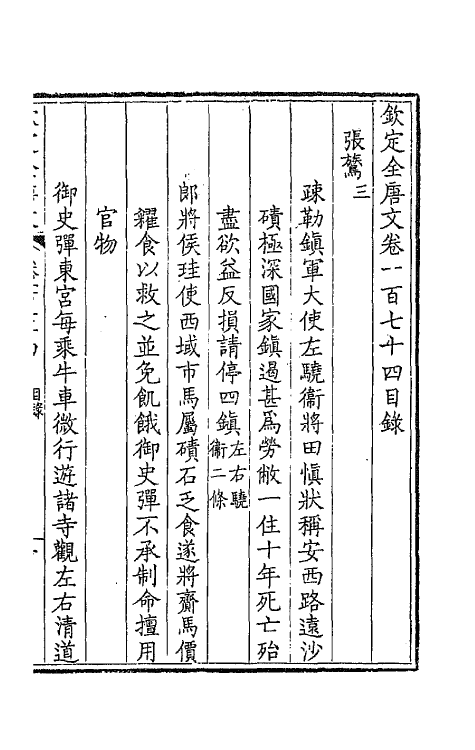 欽定全唐文卷一百七十四目錄
張鷟三
疎勒鎮軍大使左驍衞將田慎狀稱安西路遠沙
磧極深國家鎮遏甚爲勞敝一住十年死亡殆
盡欲益反損請停四鎮左右驍
衞二條
郎將侯珪使西域市馬屬磧石乏食遂將齎馬價
糴食以救之並免飢餓御史彈不承制命擅用
官物
御史彈東宮每乘牛車微行遊諸寺觀左右清道
目錄